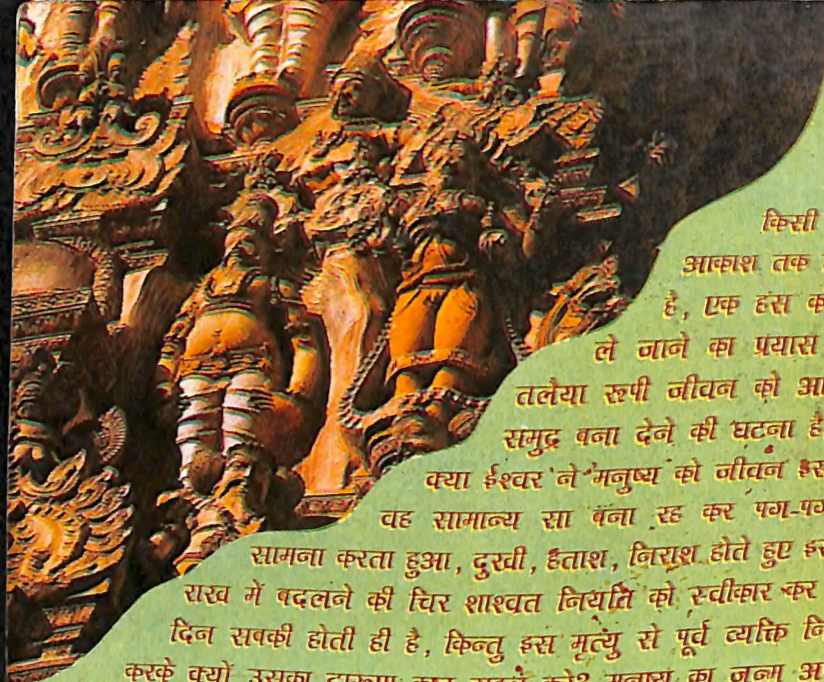 किसी
आकाश तक
है, एक हंस
ले जाने का प्रयास
तलैया रूपी जीवन को
समुद्र बना देने की घटना
क्या ईश्वर ने मनुष्य को जीवन
वह सामान्य सा बना रह कर
सामना करता हुआ, दुखी, हताश, निराश होते हुए
राख में बदलने की चिर शाश्वत नियति को स्वीकार कर
दिन सबकी होती ही है, किन्तु इस मृत्यु से पूर्व व्यक्ति
करके क्यों उसका